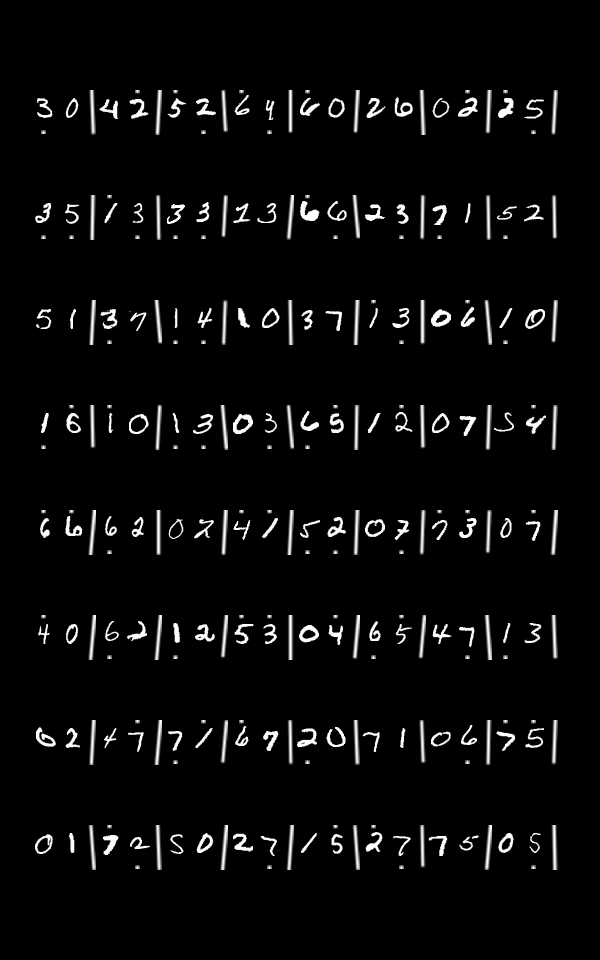 3 0 | 4 2 | 5 2 | 6 4 | 6 0 | 2 6 | 0 2 | 2 5 |
3 5 | 1 3 | 3 3 | 1 3 | 6 6 | 2 3 | 7 1 | 5 2 |
5 1 | 3 7 | 1 4 | 1 0 | 3 7 | 1 3 | 0 6 | 1 0 |
1 6 | 1 0 | 1 3 | 0 3 | 6 5 | 1 2 | 0 7 | 5 4 |
6 6 | 6 2 | 0 2 | 4 1 | 5 2 | 0 7 | 7 3 | 0 7 |
4 0 | 6 2 | 1 2 | 5 3 | 0 4 | 6 5 | 4 7 | 1 3 |
0 2 | 4 7 | 7 1 | 6 7 | 2 0 | 7 1 | 0 6 | 7 5 |
0 1 | 7 2 | 5 0 | 2 7 | 1 5 | 2 7 | 7 5 | 0 5 |